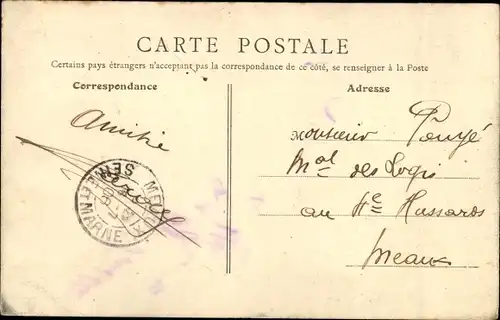 CARTE POSTALE
Certains pays étrangers n'acceptant pas la correspondance de ce côté, se renseigner à la Poste
Correspondance
Adresse
Amitié
Monsieur Pougé
Mal des Logis
au Hussards
Meaux
SEINE-ET-MARNE